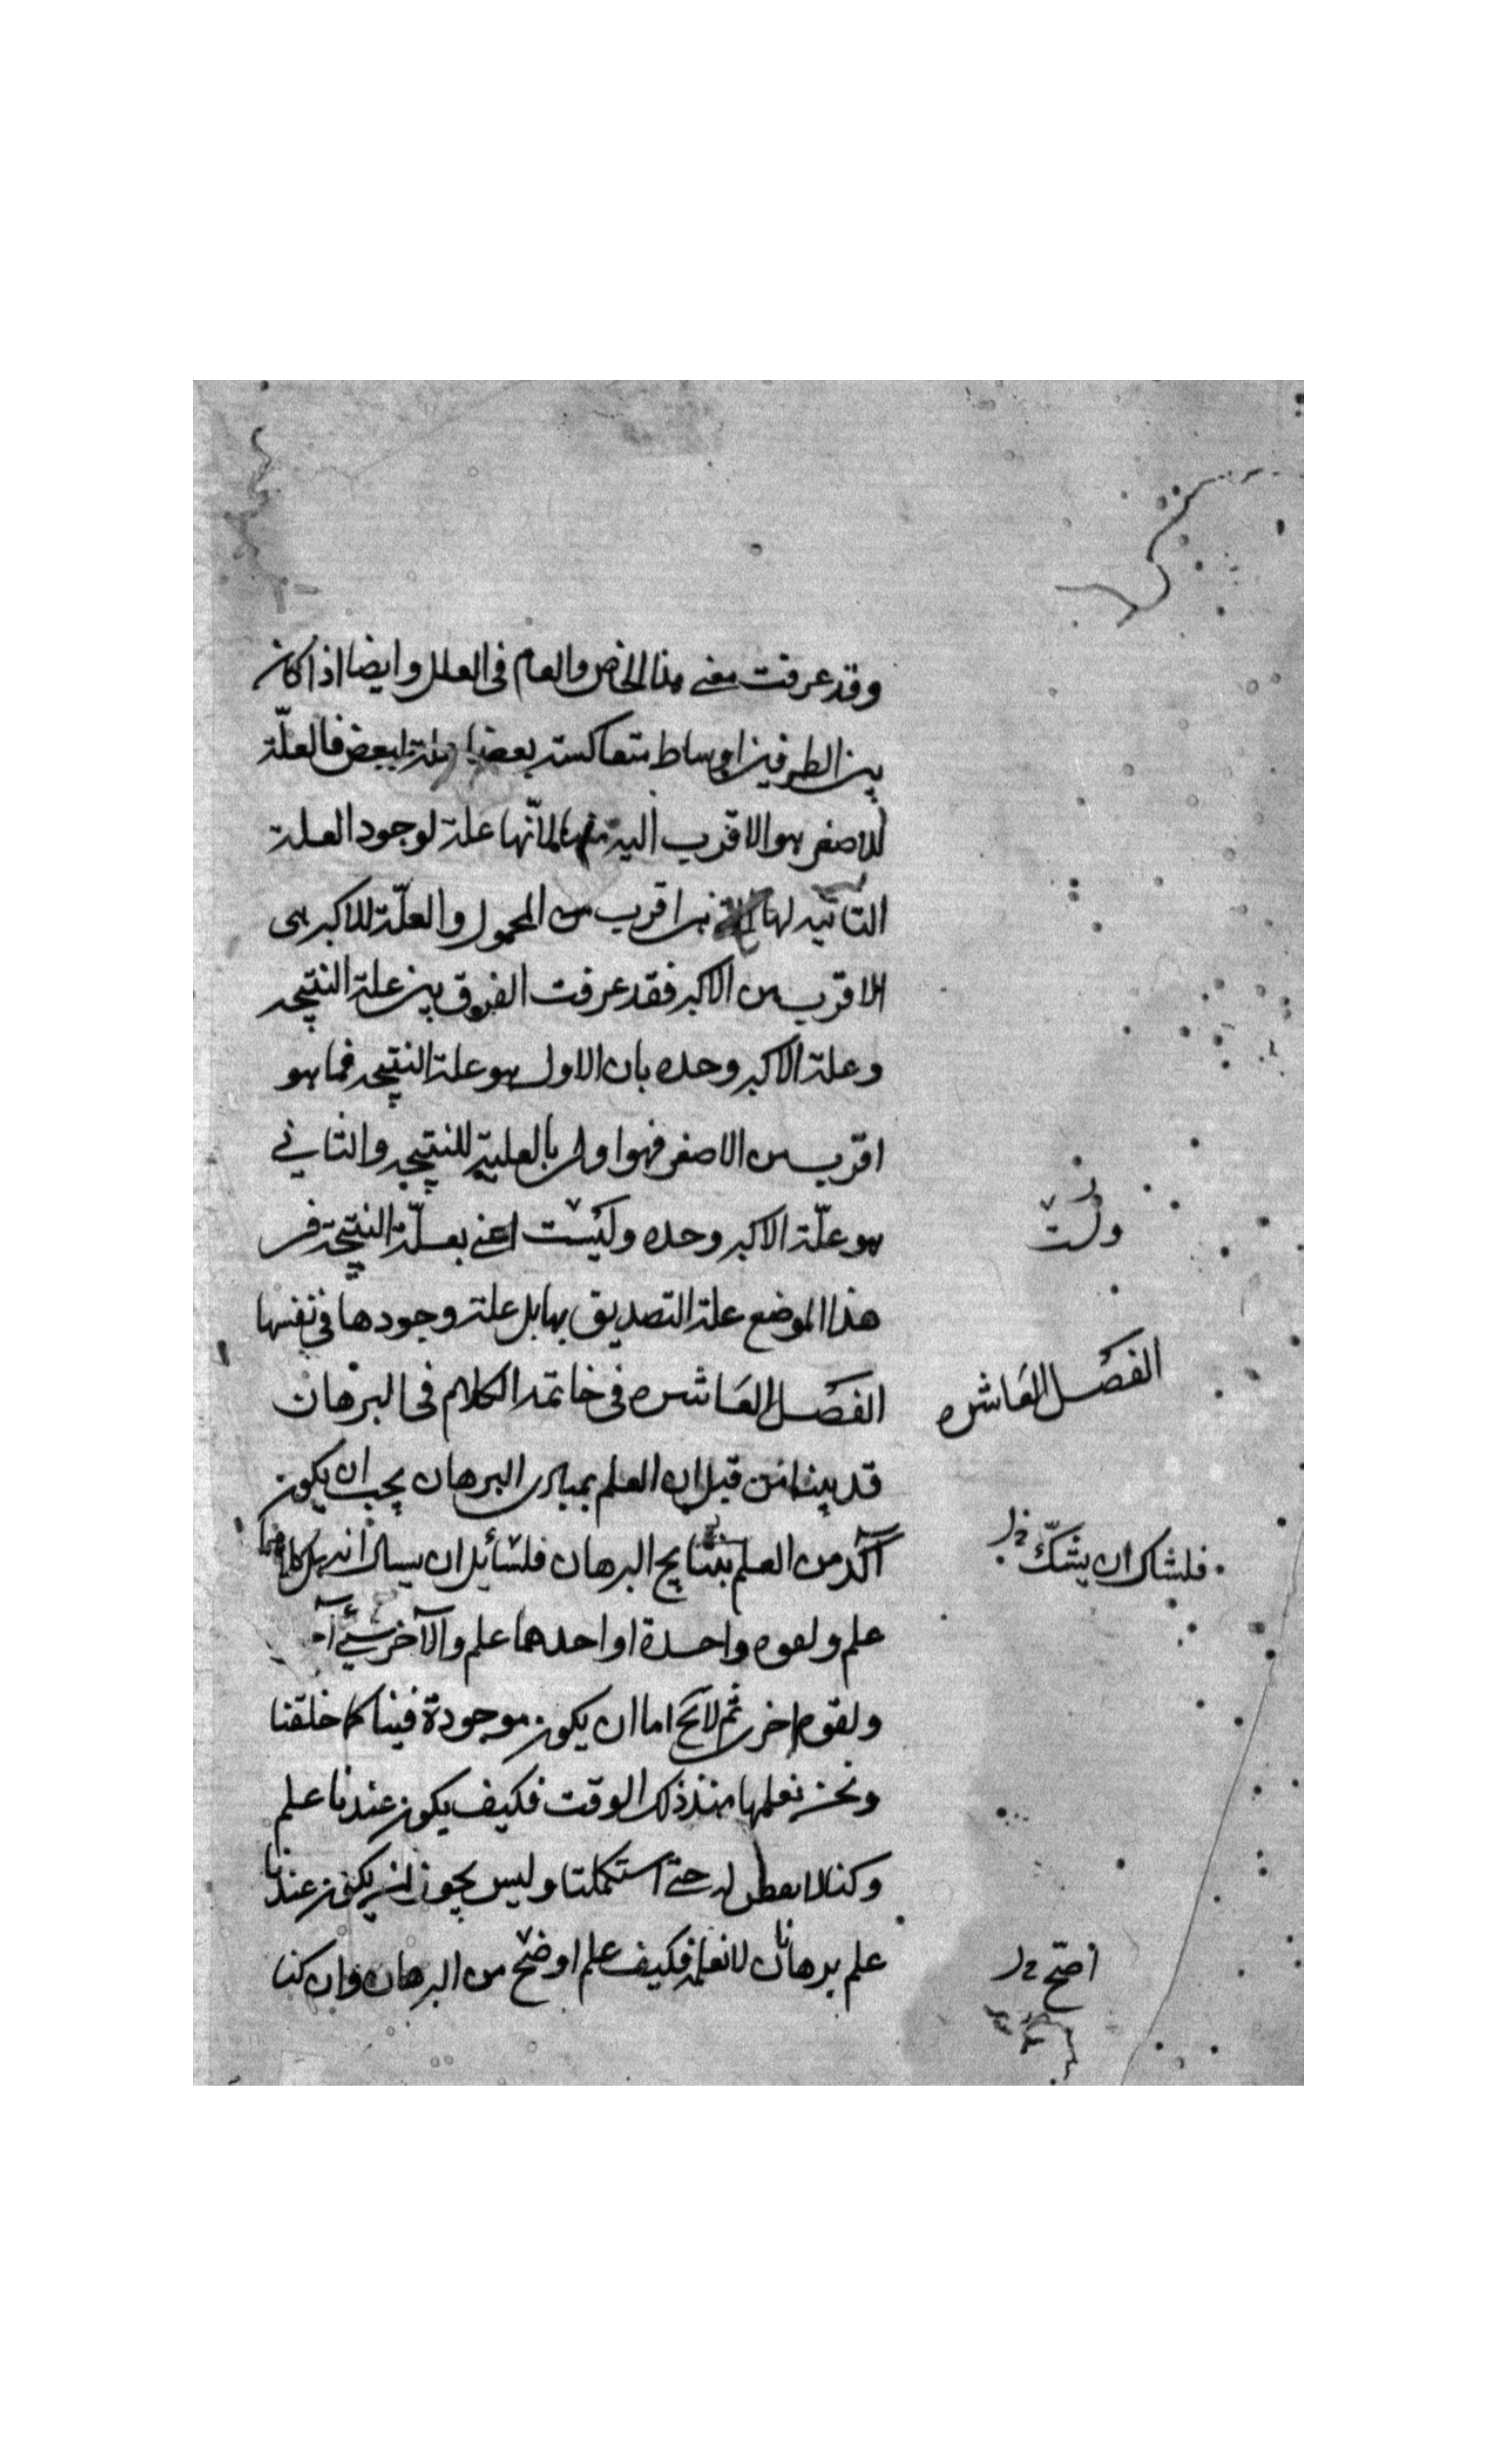 وقد عرفت معنى هذا الخاص والعام فى العلل وايضا اذا كان
بين الطرفين اوساط متعاكسة بعضها علة لبعض فالعلّة
للاصغر هو الاقرب اليه منها لانّها علة لوجود العلة
الثانيه لها اقرب من المحمول والعلّة للاكبر هى
الاقرب من الاكبر فقد عرفت الفرق بين علة النتيجه
وعلة الاكبر وحده بان الاول هو علة النتيجه فما هو
اقرب من الاصغر فهو اولى بالعلية للنتيجه والثانى
هو علّة الاكبر وحده وليست اعنى بعلّة النتيجة فى
ولست
هذا الموضع علة التصديق بها بل علة وجودها فى نفسها
الفصل العاشر ه فى خاتمة الكلام فى البرهان
الفصل العاشر ه
قد بينا من قبل ان العلم بمبادى البرهان يجب ان يكون
آكد من العلم بنتايج البرهان فلسائل ان يسال انه هل كلاهما
فلشاك ان يشكّ
علم ولقوه واحدة او احدهما علم والآخر شئ آخر
ولقوه اخرى ثم لا يخ اما ان يكون موجودة فينا كما خلقنا
ونحن نعلمها منذ ذلك الوقت فكيف يكون عندنا علم
وكنا لا نفطن له حتى استكملنا وليس يجوز ان يكون عندنا
علم برهانى لا نعلمه فكيف علم اوضح من البرهان وان كنا
اصح